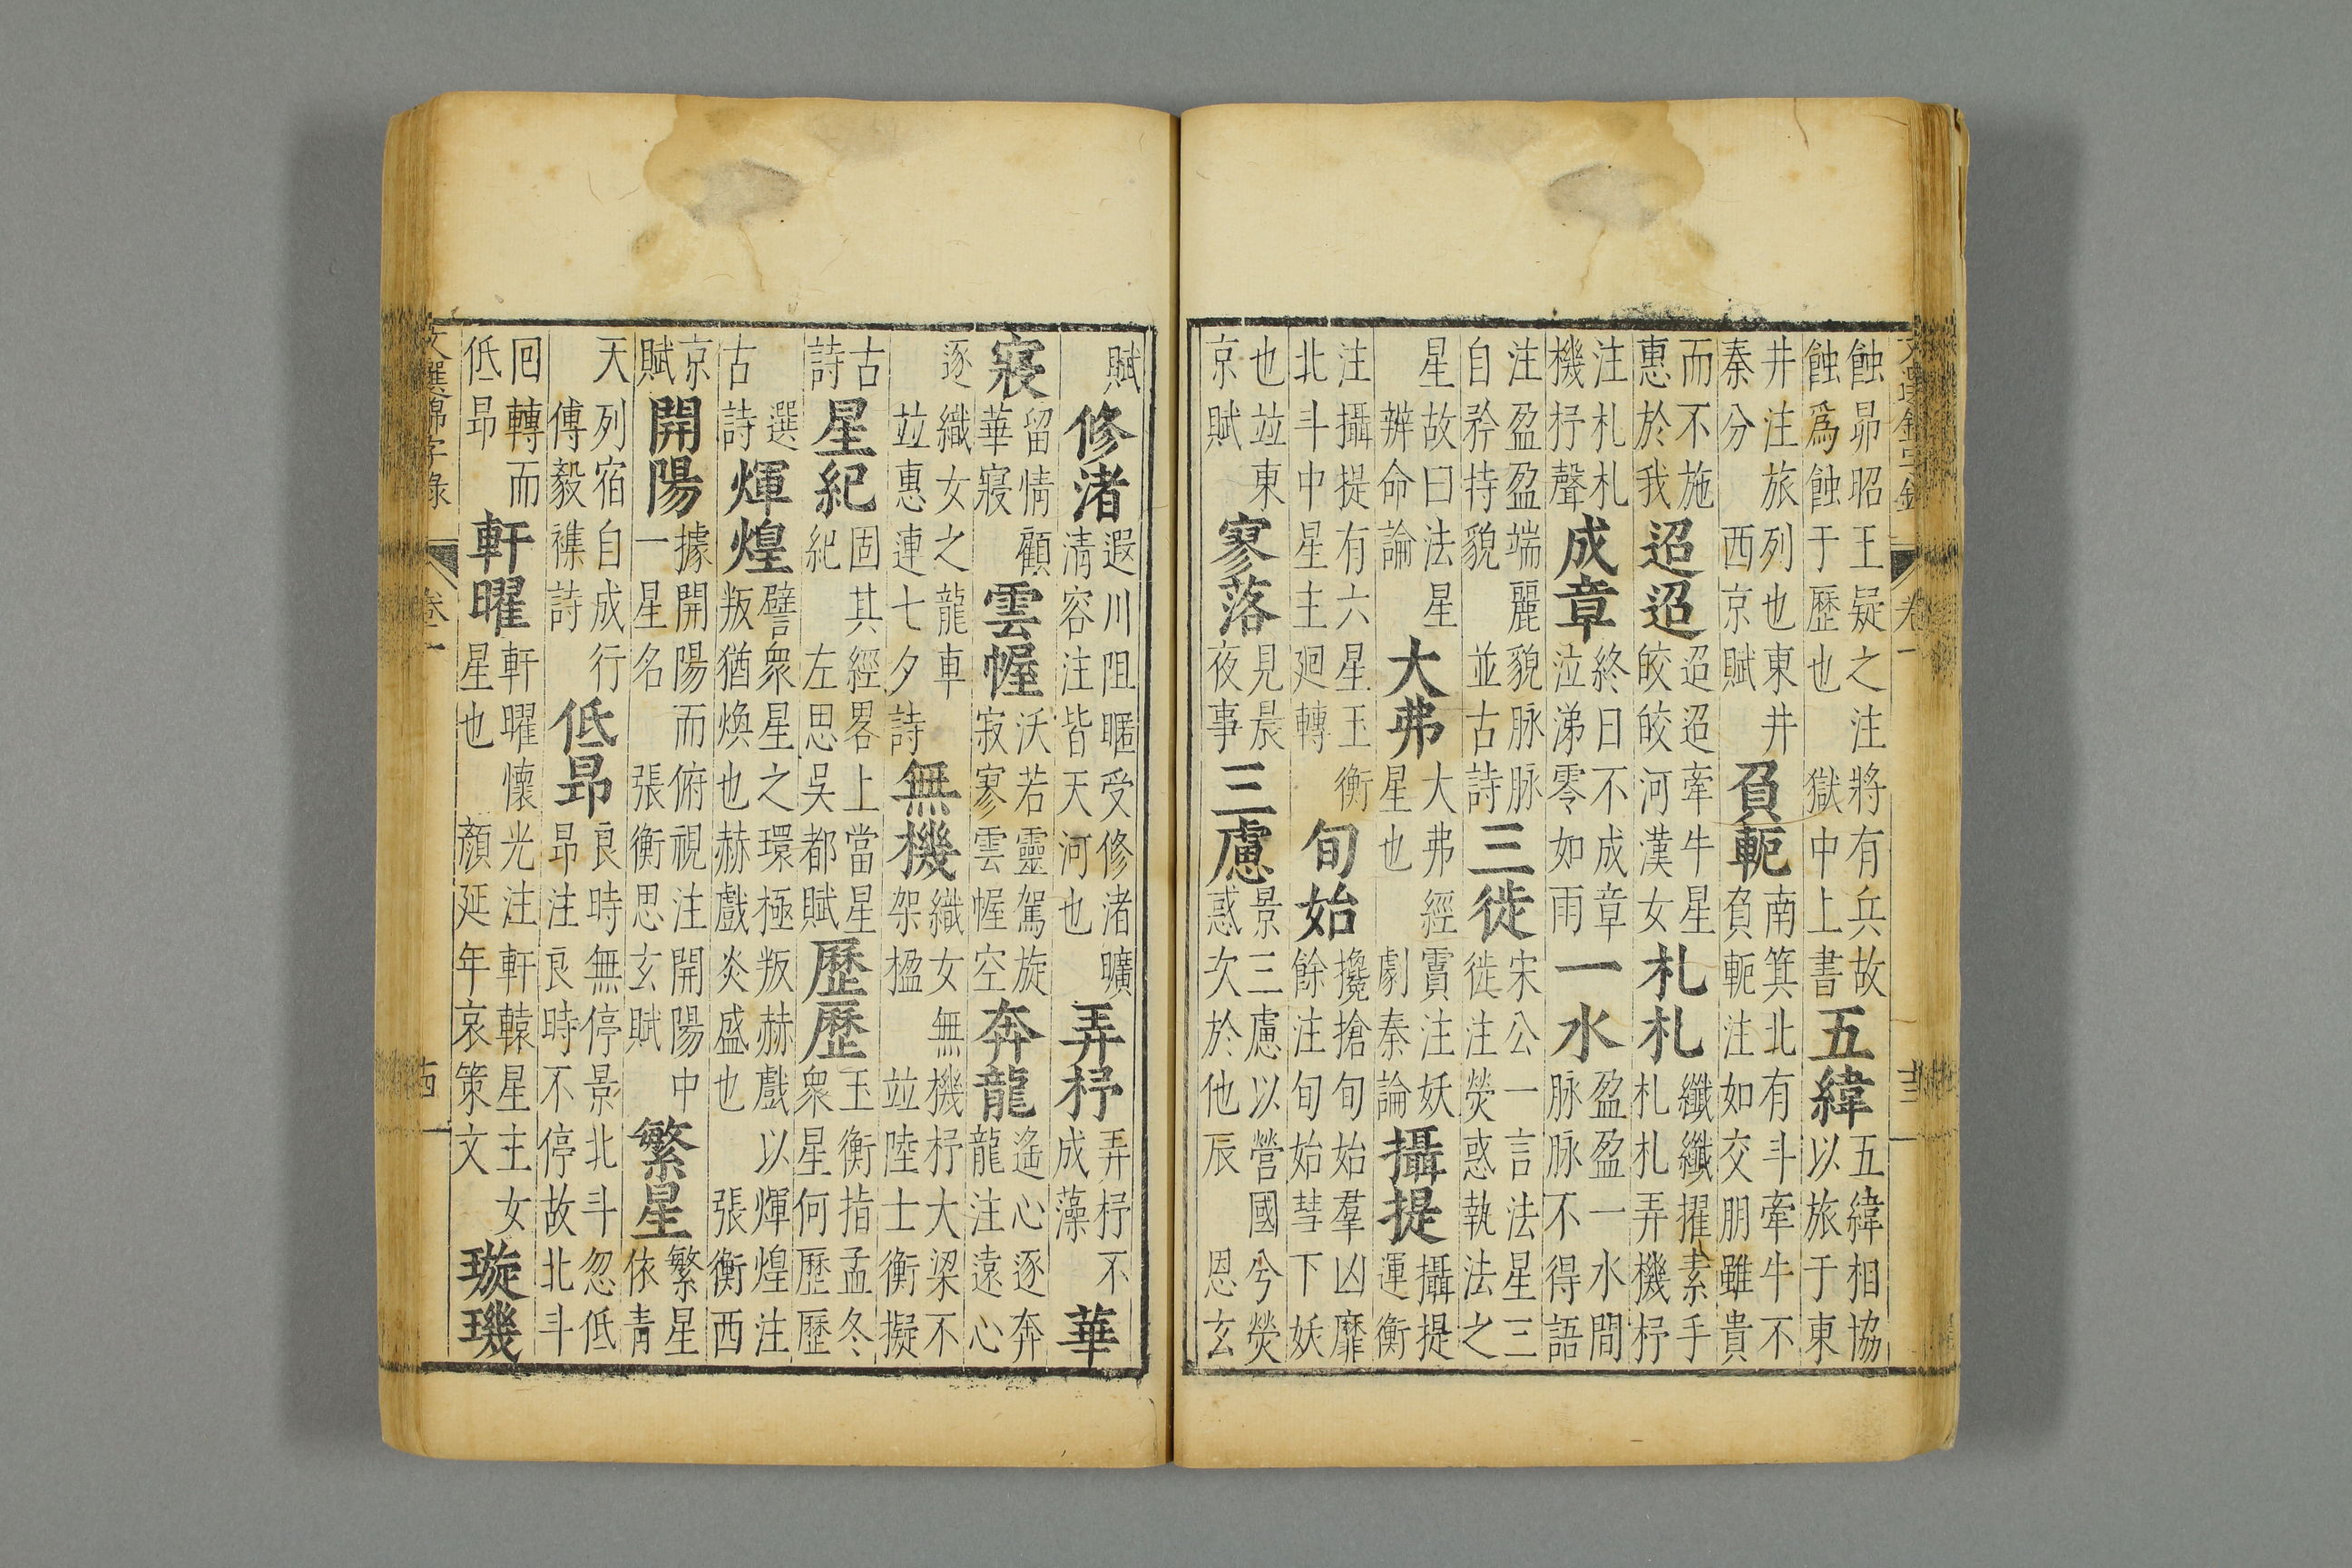 文選錦字錄 卷一 十三
蝕昴昭王疑之注將有兵故蝕爲蝕于歷也 獄中上書 五緯 五緯相協以旅于東
井注旅列也東井秦分 西京賦 負軛 南箕北有斗牽牛不負軛注如交朋雖貴
而不施惠於我 迢迢 迢迢牽牛星皎皎河漢女 札札 纖纖擢素手札札弄機杼
注札札機抒聲 成章 終日不成章泣涕零如雨 一水 盈盈一水間脉脉不得語
注盈盈端麗貌脉脉自矜持貌 並古詩 三徙 宋公一言法星三徙注熒惑執法之
星故曰法星 辨命論 大弗 大弗經霣注妖星也 劇秦論 攝提 攝提運衡
注攝提有六星玉衡北斗中星主廻轉 旬始 攙搶旬始羣凶靡餘注旬始彗下妖
也並東京賦 寥落 見晨夜事 三慮 景三慮以營國兮熒惑次於他辰 恩玄
賦 修渚 遐川阻暱受修渚曠清容注皆天河也 弄杼 弄杼不成藻 華
寢 留情顧華寢 雲幄 沃若靈駕旋寂寥雲幄空 奔龍 遙心逐奔龍注遠心
逐織女之龍車 並惠連七夕詩 無機 織女無機杼大梁不架楹 並陸士衡擬
古詩 星紀 固其經畧上當星紀 左思吳都賦 歷歷 玉衡指孟冬衆星何歷歷
選古詩 煇煌 譬衆星之環極叛赫戲以煇煌注叛猶煥也赫戲炎盛也 張衡西
京賦 開陽 據開陽而俯視注開陽中一星名 張衡思玄賦 繁星 繁星依青
天列宿自成行 傅毅襍詩 低昂 良時無停景北斗忽低昂注良時不停故北斗
回轉而低昂 軒曜 軒曜懷光注軒轅星主女星也 顏延年哀策文 璇璣
文選錦字錄 卷一 十四